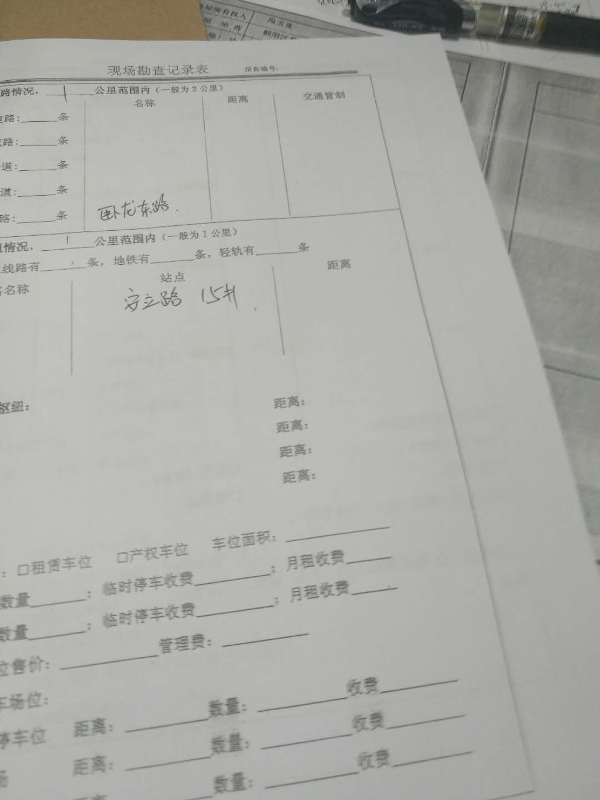 现场勘查记录表
路情况，1公里范围内（一般为2公里）
名称 距离 交通管制
路：____条
路：____条
道：____条
道：____条
路：____条
卧龙东路
情况，1公里范围内（一般为1公里）
线路有____条，地铁有____条，轻轨有____条
名称 站点 距离
安立路 15号
枢纽： 距离：
距离：
距离：
距离：
：□租赁车位 □产权车位 车位面积：____
数量____；临时停车收费____；月租收费____
数量____；临时停车收费____；月租收费____
位售价：____管理费：____
车场位：
停车位 距离：____数量：____收费____
场 距离：____数量：____收费____
距离：____数量：____收费____